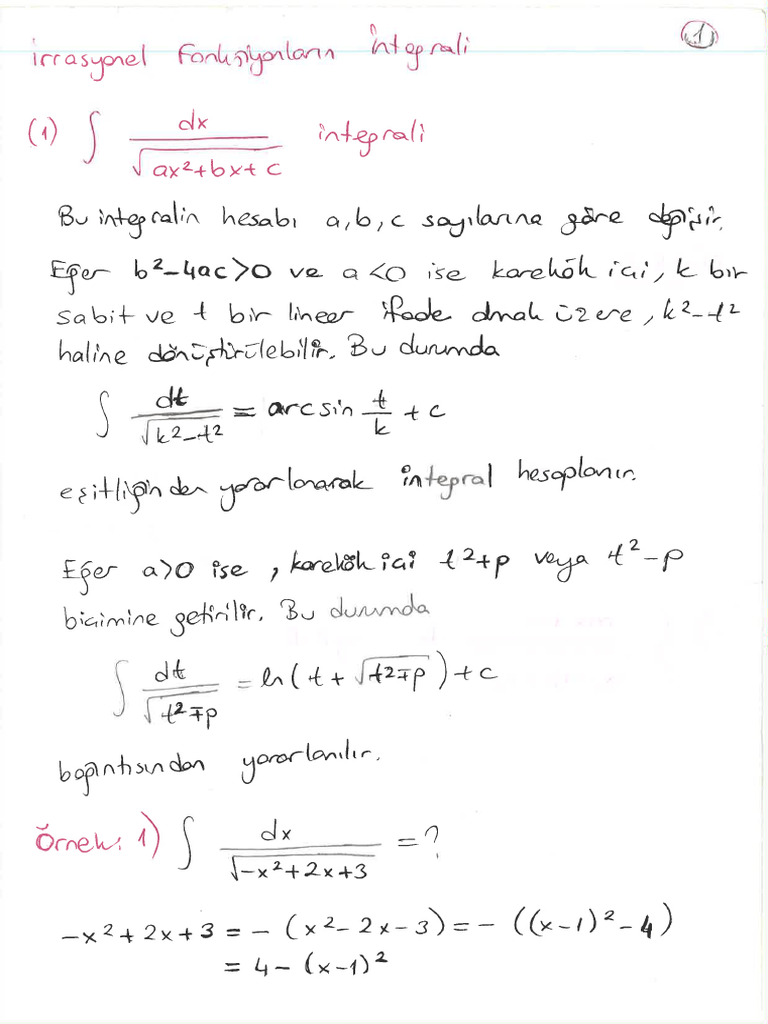 irrasyonel Fonksiyonların İntegrali
1
(1) ∫ dx / √(ax²+bx+c) integrali
Bu integralin hesabı a, b, c sayılarına göre değişir.
Eğer b²-4ac>0 ve a<0 ise karekök içi, k bir
sabit ve t bir lineer ifade olmak üzere, k²-t²
haline dönüştürülebilir. Bu durumda
∫ dt / √(k²-t²) = arcsin t/k + c
eşitliğinden yararlanarak integral hesaplanır.
Eğer a>0 ise, karekök içi t²+p veya t²-p
biçimine getirilir. Bu durumda
∫ dt / √(t²∓p) = ln(t + √(t²∓p)) + c
bağıntısından yararlanılır.
Örnek: 1) ∫ dx / √(-x²+2x+3) = ?
-x²+2x+3 = -(x²-2x-3) = -((x-1)²-4)
= 4-(x-1)²